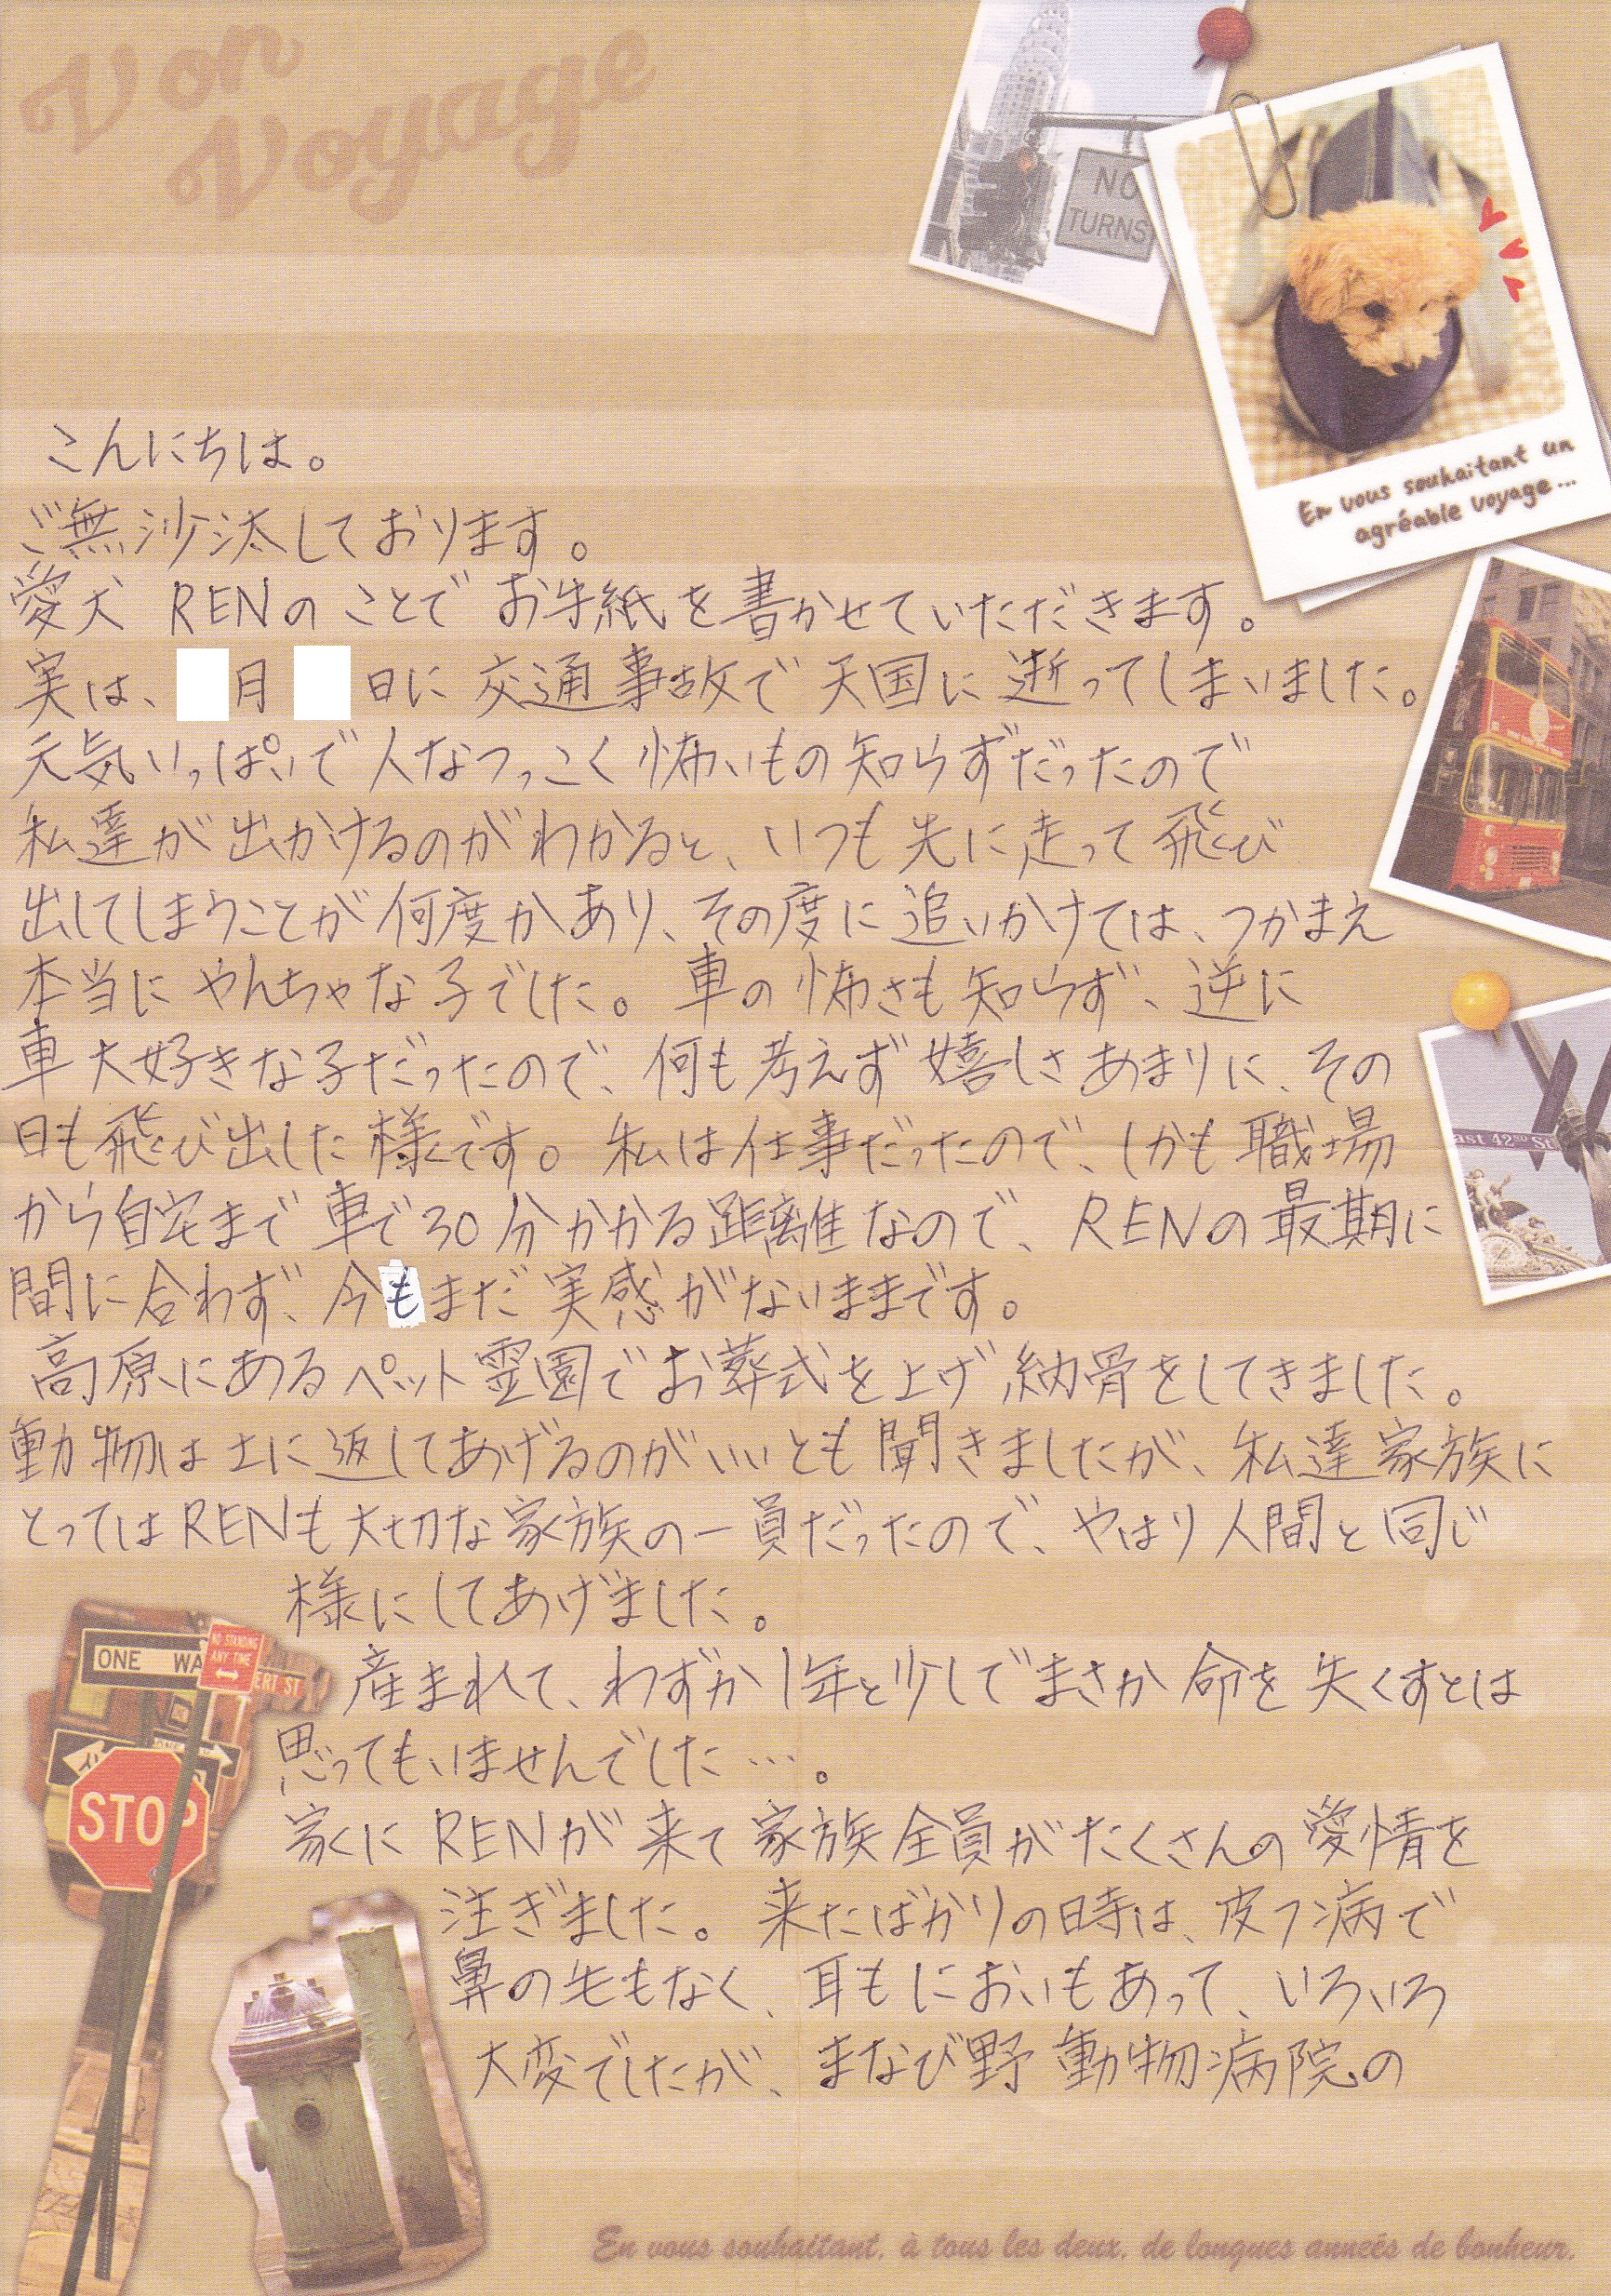 Von
Voyage
NO
TURNS
En vous souhaitant un
agréable voyage...
こんにちは。
ご無沙汰しております。
愛犬 RENのことでお手紙を書かせていただきます。
実は、 月 日に交通事故で天国に逝ってしまいました。
元気いっぱいで人なつっこく怖いもの知らずだったので
私達が出かけるのがわかると、いつも先に走って飛び
出してしまうことが何度かあり、その度に追いかけては、つかまえ
本当にやんちゃな子でした。車の怖さも知らず、逆に
車大好きな子だったので、何も考えず嬉しさあまりに、その
日も飛び出した様です。私は仕事だったので、しかも職場
から自宅まで車で30分かかる距離なので、RENの最期に
間に合わず、今もまだ実感がないままです。
高原にあるペット霊園でお葬式を上げ納骨をしてきました。
動物は土に返してあげるのがいいとも聞きましたが、私達家族に
とってはRENも大切な家族の一員だったので、やはり人間と同じ
様にしてあげました。
産まれて、わずか1年と少しでまさか命を失くすとは
思ってもいませんでした…。
家にRENが来て家族全員がたくさんの愛情を
注ぎました。来たばかりの時は、皮フ病で
鼻の毛もなく、耳もにおいもあって、いろいろ
大変でしたが、まなび野動物病院の
ast 42ND St
ONE WA
NO STANDING
ANY TIME
ERT ST
STOP
En vous souhaitant, à tous les deux, de longues années de bonheur.